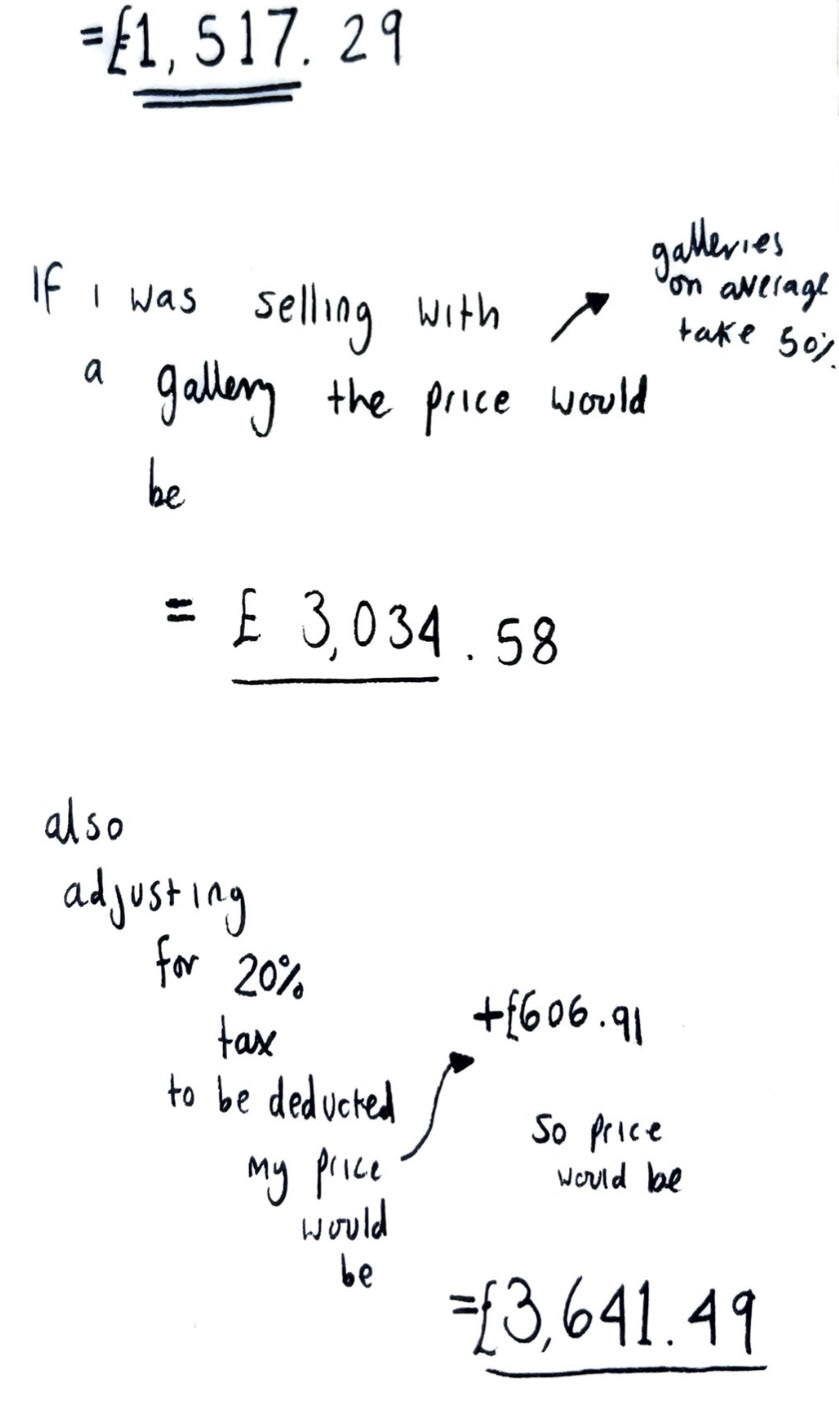 =£1,517.29
If I was selling with
a gallery the price would
be
galleries
on average
take 50%.
= £ 3,034.58
also
adjusting
for 20%
tax
to be deducted
my price
would
be
+£606.91
So price
would be
=£3,641.49